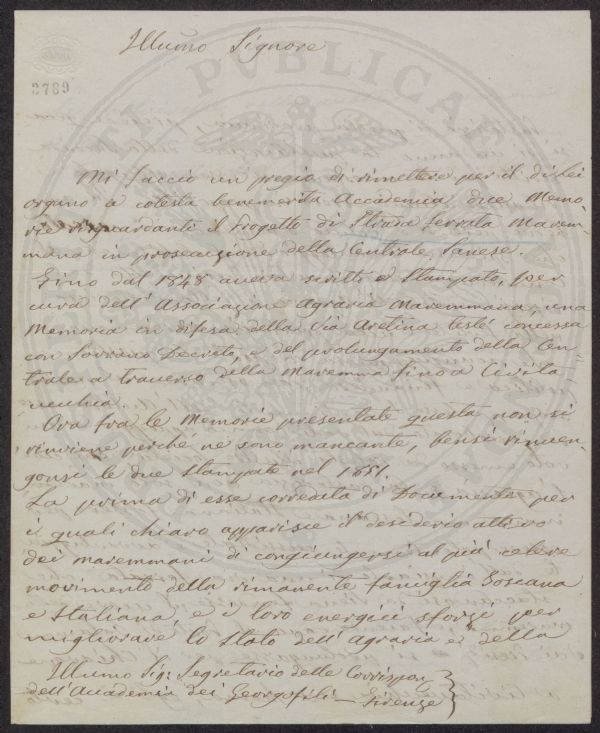 Illumo Signore
2789
PVBLICAE
Mi faccio un pregio di rimettere per il di lei
organo a cotesta benemerita Accademia due Memo-
rie risguardanti il Progetto di Strada ferrata Marem-
mana in prosecuzione della Centrale Sanese.
Fino dal 1848 aveva scritto e stampato, per
cura dell'Associazione Agraria Maremmana, una
Memoria in difesa della Via Aretina testé concessa
con Sovrano Decreto, e del prolungamento della Cen-
trale a traverso della Maremma fino a Civita-
vecchia.
Ora fra le Memorie presentate questa non si
rinviene perché ne sono mancante, bensì rinven-
gonsi le due stampate nel 1851.
La prima di esse corredata di Documenti per
i quali chiaro apparisce il desiderio attivo
dei maremmani di congiungersi al più celere
movimento della rimanente famiglia Toscana
e Italiana, e i loro energici sforzi per
migliorare lo stato dell'Agraria e della
Illumo Sig: Segretario delle Corrispon
dell'Accademia dei Georgofili — Firenze